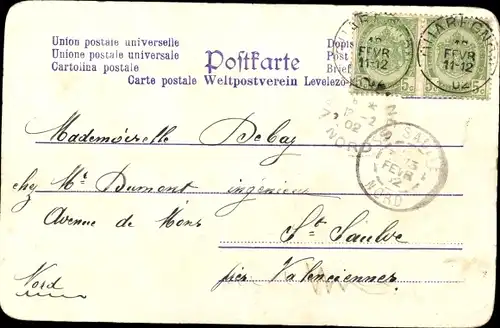 Union postale universelle
Unione postale universale
Cartolina postale
Postkarte
Carte postale Weltpostverein Levelezo
Dopis
Post
Brief
FEVR
11-12
02
FEVR
11-12
02
5c
5c
NORD
02
FEVR
NORD
Mademoiselle Debay
chez Mr Dumont ingénieur
Avenue de Mons
St Saulve
Nord
près Valenciennes